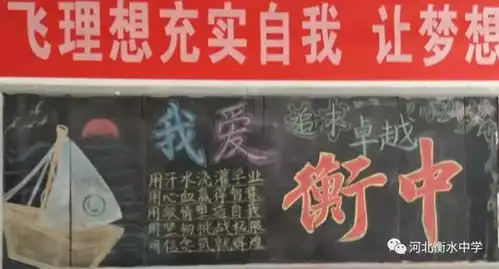 飞理想充实自我 让梦想
我爱
追求卓越
衡中
用汗水浇灌学业
用心血赢得智慧
用激情塑造自我
用坚韧挑战极限
用信念成就辉煌
河北衡水中学